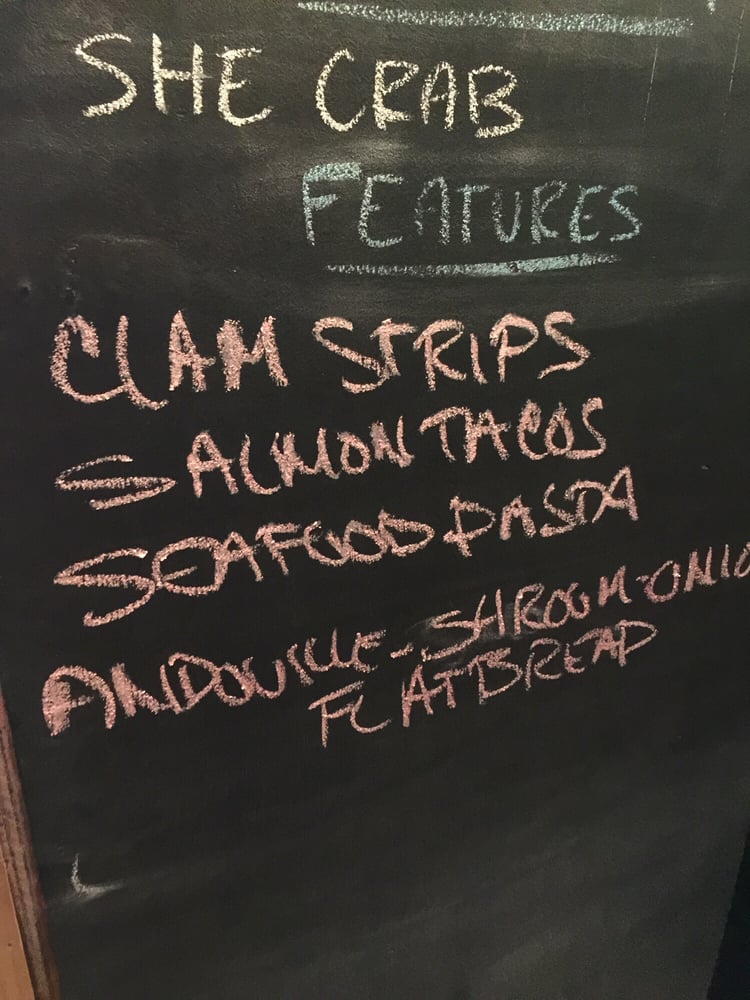 SHE CRAB
FEATURES
CLAM STRIPS
SALMON TACOS
SEAFOOD PASTA
ANDOUILLE-SHROOM-ONIO
FLATBREAD